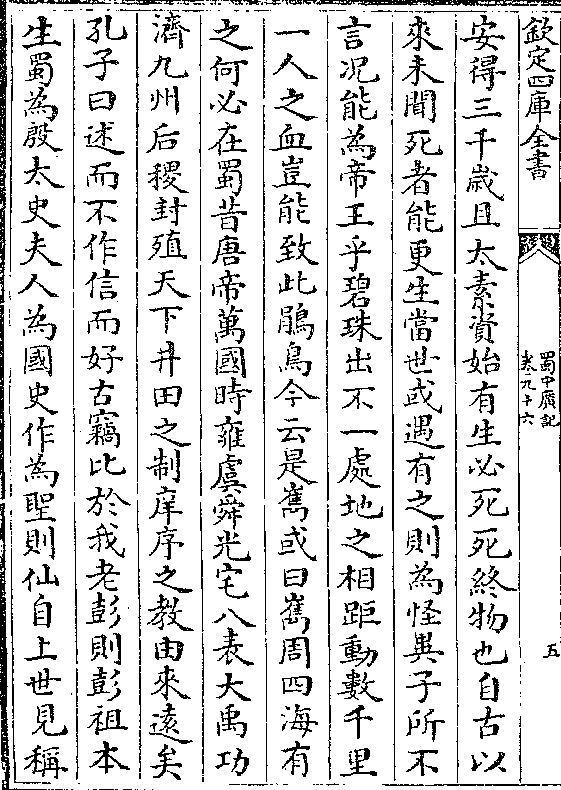 欽定四庫全書
蜀中廣記
卷九十六
五
安得三千歲且太素資始有生必死死終物也自古以
來未聞死者能更生當世或遇有之則為怪異子所不
言况能為帝王乎碧珠出不一處地之相距動數千里
一人之血豈能致此鵑鳥今云是嶲或曰嶲周四海有
之何必在蜀昔唐帝萬國時雍虞舜光宅八表大禹功
濟九州后稷封殖天下井田之制庠序之教由來遠矣
孔子曰述而不作信而好古竊比於我老彭則彭祖本
生蜀為殷太史夫人為國史作為聖則仙自上世見稱